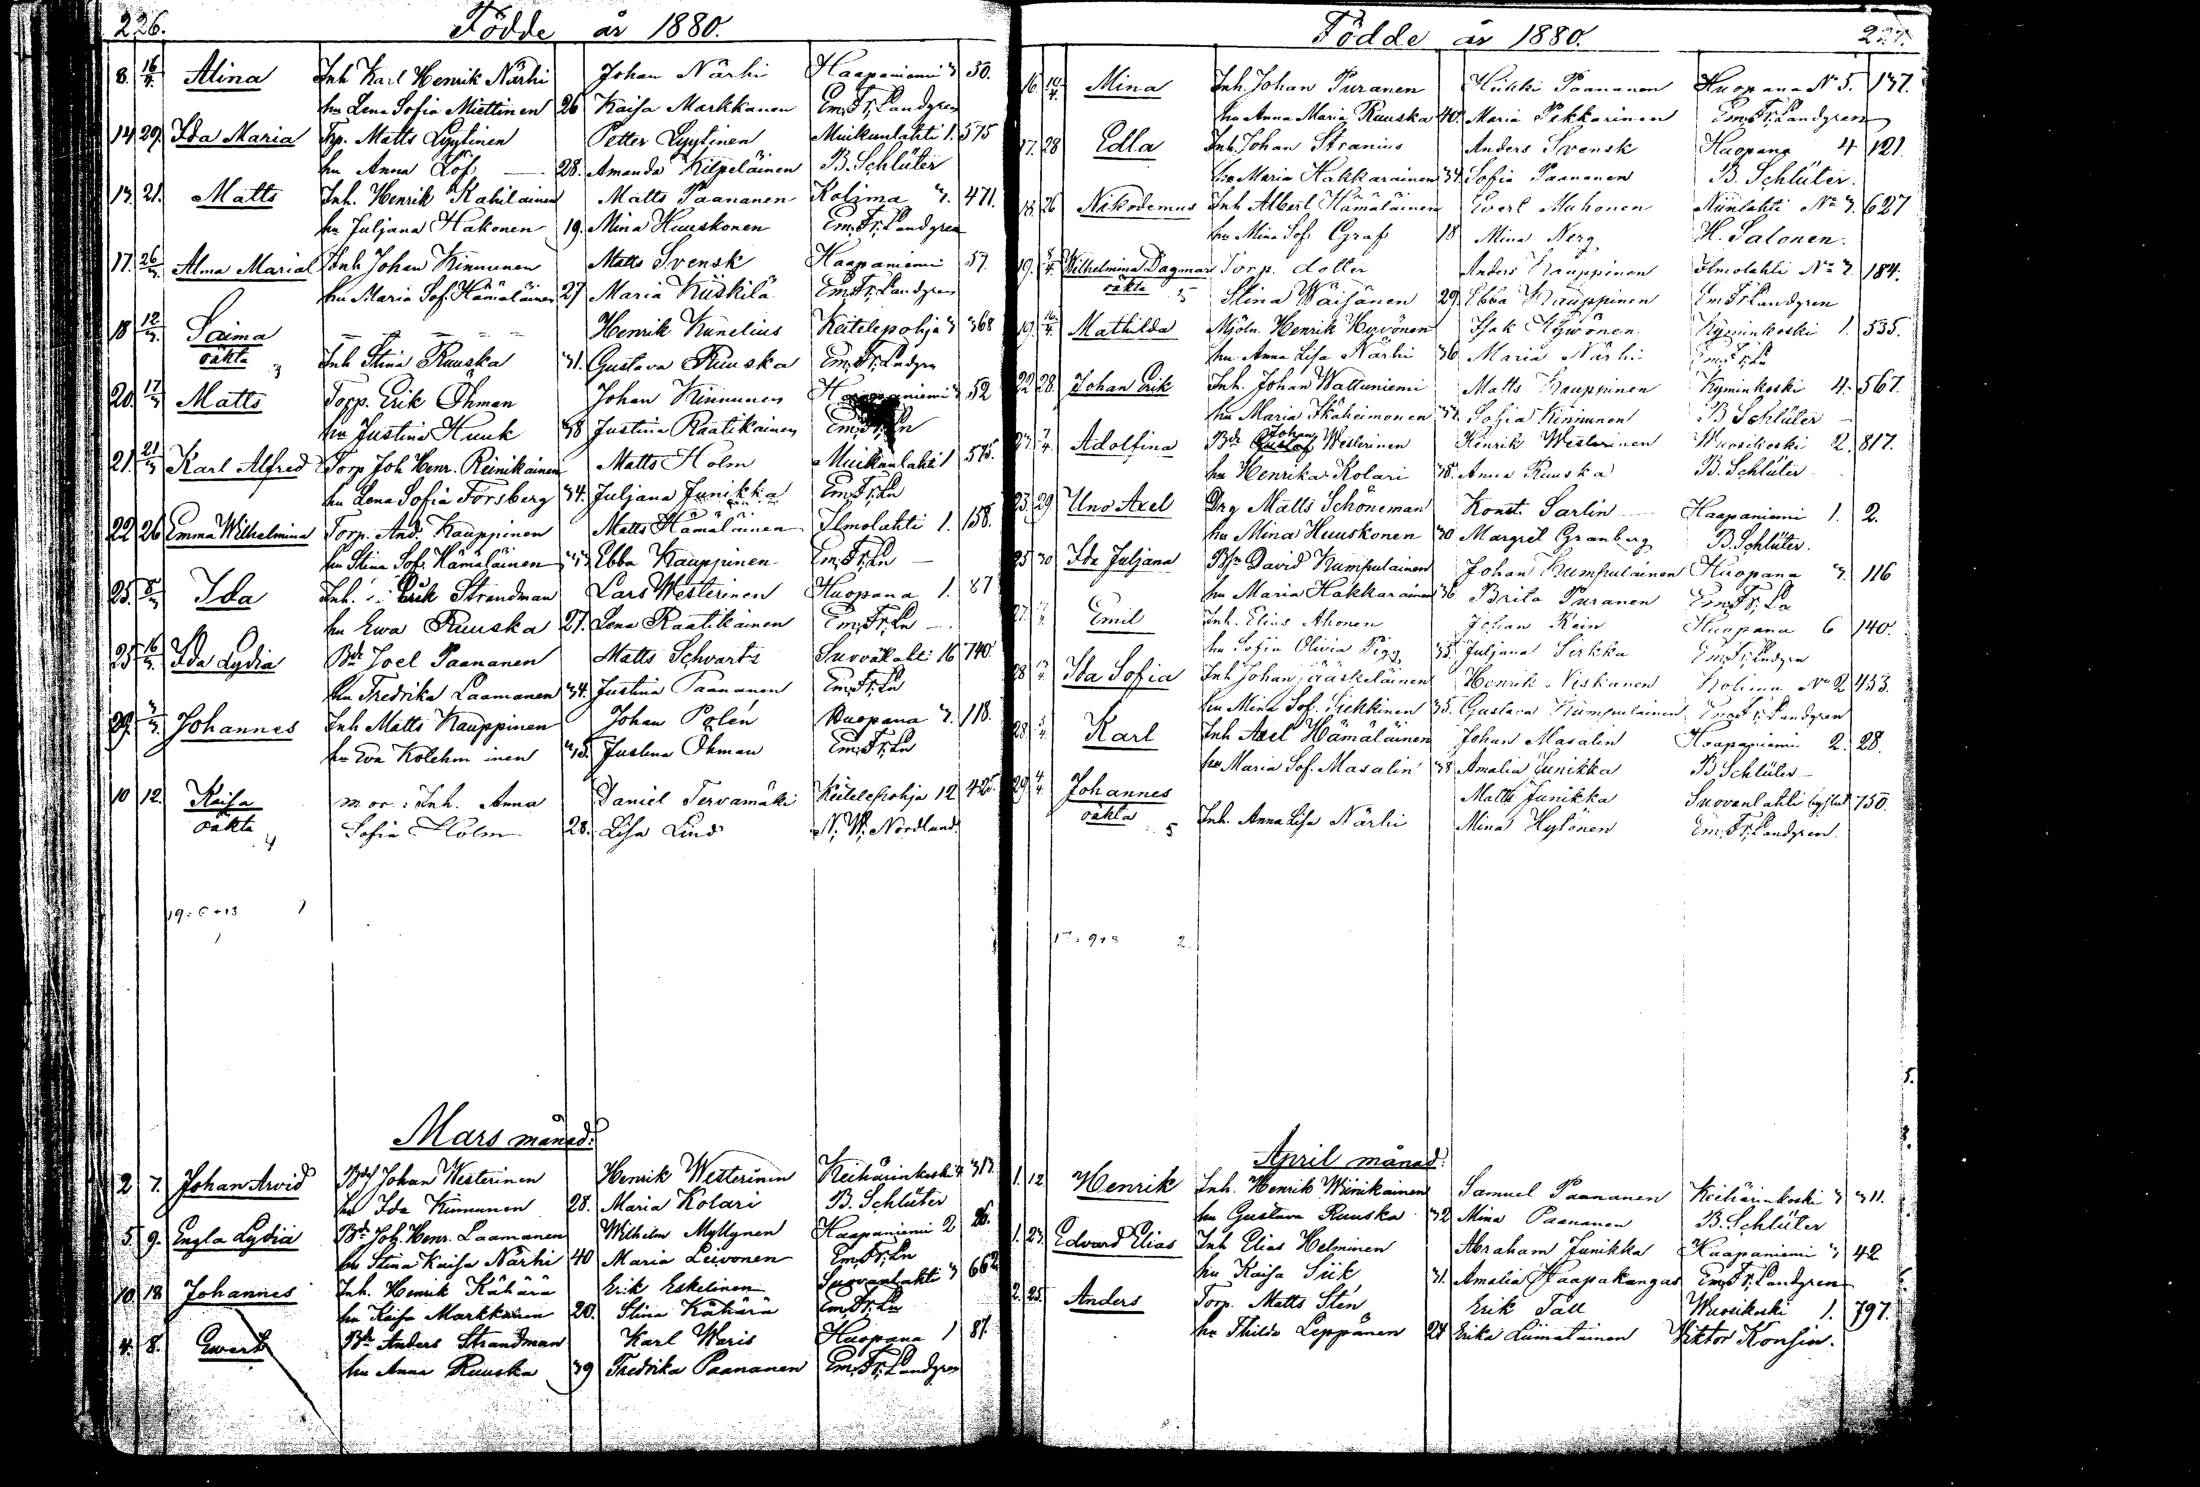 226.
Födde år 1880.
8. 16/4. Alina Inh Karl Henrik Närhi Johan Närhi Haapaniemi 3 30.
hu Lena Sofia Miettinen 26 Kaisa Markkanen Em. Fr. Landgren
14 29. Ida Maria Trp. Matts Lyytinen Petter Lyytinen Muikunlahti 1. 575
hu Anna Löf 28. Amanda Kilpeläinen B. Schlüter
13. 21. Matts Inh. Henrik Kahilainen Matts Paananen Kolima 3. 471.
hu Juljana Hakonen 19. Mina Huuskonen Em. Fr. Landgren
17. 26/3 Alma Maria Inh Johan Kinnunen Matts Svensk Haapaniemi 57.
hu Maria Sof. Hämäläinen 27 Maria Kiiskilä Em. Fr. Landgren
18 12/3. Saima Henrik Kunelius Keitelepohja 3 368
oäkta 3 Inh Stina Ruuska 31. Gustava Ruuska Em. Fr. Landgren
20. 17/3 Matts Torp. Erik Öhman Johan Kinnunen 52
hu Justina Huuk 38 Justina Raatikainen Em. Fr. Ln
21. 21/3 Karl Alfred Torp Joh Henr. Reinikainen Matts Holm Muikunlahti 1 575.
hu Lena Sofia Forsberg 34. Juljana Junikka Em. Fr. Ln
22 26 Emma Wilhelmina Torp. And. Kauppinen Matts Hämäläinen Ilmolahti 1. 158.
hu Stina Sof. Hämäläinen Ebba Kauppinen Em. Fr. Ln
25. Ida Inh. Erik Strandman Lars Westerinen Huopana 1. 87
hu Ewa Ruuska 27. Lena Raatikainen Em. Fr. Ln
25 16/3. Ida Lydia Bd Joel Paananen Matts Schvartz Suovalahti 16 740.
hu Fredrika Laamanen 34. Justina Paananen Em. Fr. Ln
29. Johannes Inh Matts Kauppinen Johan Polén Huopana 3. 118.
hu Eva Kolehmainen Justina Öhman Em. Fr. Ln
10 12. Kaisa mor: Inh. Anna Daniel Tervamäki Keitelepohja 12 425.
oäkta 4 Sofia Holm 28. Lisa Lind N. W. Nordlund.
19 = 6 + 13
Mars månad:
2 7. Johan Arvid Bd Johan Westerinen Henrik Westerinen Keihärinkoski 4 313.
hu Ida Kinnunen 28. Maria Kolari B. Schlüter
5. 9. Engla Lydia Bd Joh. Henr. Laamanen Wilhelm Myllynen Haapaniemi 2 26.
hu Stina Kaisa Närhi 40 Maria Leivonen Em. Fr. Ln
10 18 Johannes Inh. Henrik Kähärä Erik Eskelinen Suovanlahti 3 662
hu Kaisa Markkanen 20. Stina Kähärä Em. Fr. Ln
4. 8. Ewert Bd Anders Strandman Karl Waris Huopana 1 87.
hu Anna Ruuska 39 Fredrika Paananen Em. Fr. Landgren
Födde år 1880.
227.
16. 14/4. Mina Inh. Johan Puranen Heikki Paananen Huopana No 5. 137.
hu Anna Maria Ruuska 40. Maria Pekkarinen Em. Fr. Landgren
17. 28 Edla Inh. Johan Stranius Anders Svensk Huopana 4 121.
hu Maria Hakkarainen 34. Sofia Paananen B. Schlüter.
18. 26 Nikodemus Inh Albert Hämäläinen Evert Muhonen Niinlahti No 3. 627
hu Mina Sof. Graf 18 Mina Nerg H. Salonen.
19. Wilhelmina Dagmar Torp. dotter Anders Kauppinen Ilmolahti No 3. 184.
oäkta 5 Stina Wäisänen 29. Ebba Kauppinen Em Fr Landgren
19. Mathilda Mjöln. Henrik Hyvönen Isak Hyvönen Kyminkoski 1. 535.
hu Anna Lisa Närhi 36 Maria Närhi Em. Fr. Ln
22 28. Johan Erik Inh. Johan Wattuniemi Matts Kauppinen Kyminkoski 4. 567.
hu Maria Ikäheimonen Sofia Kinnunen B Schlüter
23. Adolfina Bd Johan Westerinen Henrik Westerinen Wuosikoski 2. 817.
hu Henrika Kolari 38. Anna Ruuska B. Schlüter
23. 29 Uno Axel Drg Matts Schöneman Konst. Sarlin Haapaniemi 1. 2.
hu Mina Huuskonen 30 Margret Granberg B. Schlüter.
25 30 Ida Juljana Bsn David Kumpulainen Johan Kumpulainen Huopana 3. 116
hu Maria Hakkarainen 36 Brita Puranen Em. Fr. Ln
27. Emil Inh. Elias Ahonen Johan Rein Huopana 6 140.
hu Sofia Olivia Pigg 35. Juljana Sirkka Em. Fr. Landgren
28 Ida Sofia Inh Johan Jääskeläinen Henrik Niskanen Kolima No 2 453.
hu Mina Sof. Tiekkinen 35. Gustava Kumpulainen Em. Fr. Landgren
28. Karl Inh Axel Hämäläinen Johan Masalin Haapaniemi 2. 28.
hu Maria Sof. Masalin 38 Amalia Junikka B Schlüter
29. 4/4 Johannes Matts Junikka Suovanlahti 750.
oäkta 5 Inh. Anna Lisa Närhi Mina Hytönen Em. Fr. Landgren.
17 = 9 + 8 2.
April månad:
1. 12 Henrik Inh. Henrik Wiinikainen Samuel Paananen Keihärinkoski 3 311.
hu Gustava Ruuska 32 Mina Paananen B. Schlüter
1. 23. Edvard Elias Inh Elias Helminen Abraham Junikka Haapaniemi 3 42
hu Kaisa Siik 31. Amalia Haapakangas Em. Fr. Landgren
2. 25. Anders Torp. Matts Stén Erik Tall Wuosikoski 1. 797.
hu Thilda Leppänen 24 Erika Liimatainen Viktor Konsin.